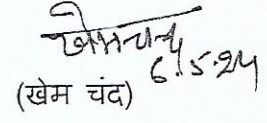 खेमचन्द
6.5.24
(खेम चंद)